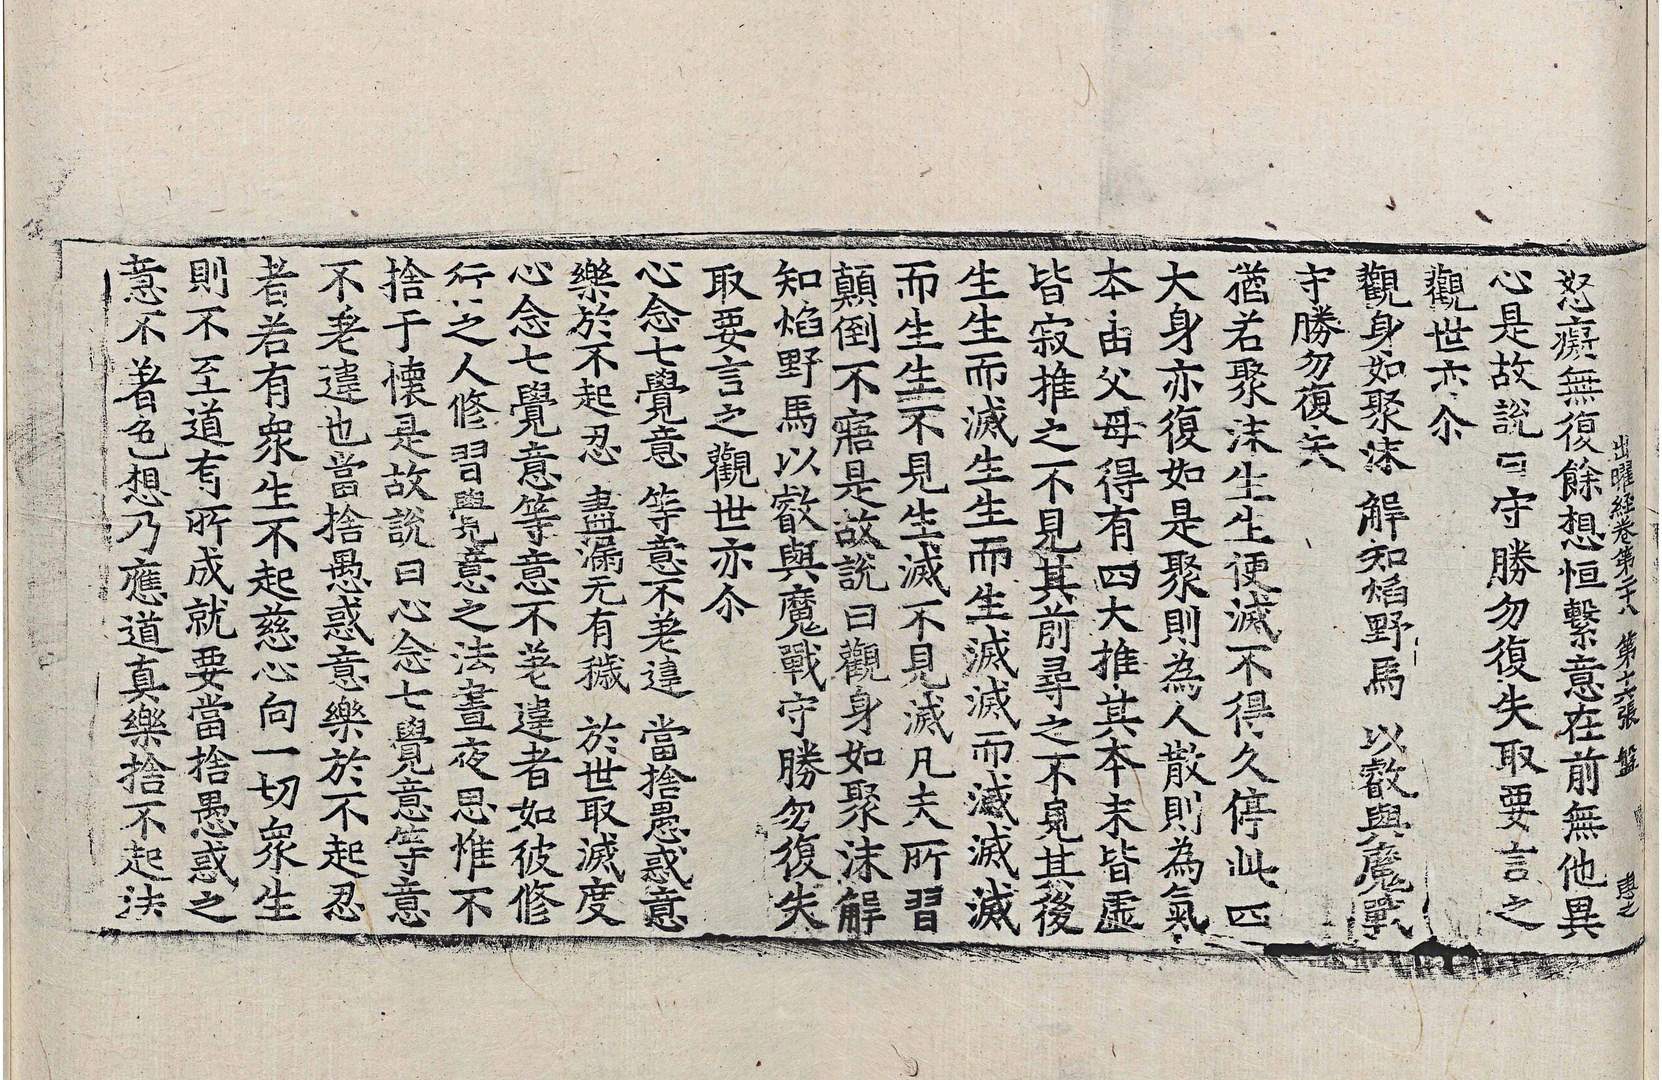 出曜経巻第二十八 第十六張 盤
怒癡無復餘想恒繫意在前無他異
心是故說曰守勝勿復失取要言之
觀世亦尒
觀身如聚沫 解知焰野馬 以敵與魔戰
守勝勿復失
猶若聚沫生生便滅不得久停此四
大身亦復如是聚則為人散則為氣
本由父母得有四大推其本末皆虛
皆寂推之不見其前尋之不見其後
生生而滅生生而生滅滅而滅滅滅
而生生生不見生滅不見滅凡夫所習
顛倒不寤是故說曰觀身如聚沫解
知焰野馬以敵與魔戰守勝勿復失
取要言之觀世亦尒
心念七覺意 等意不差違 當捨愚惑意
樂於不起忍 盡漏无有穢 於世取滅度
心念七覺意等意不差違者如彼修
行之人修習覺意之法晝夜思惟不
捨于懷是故說曰心念七覺意等意
不差違也當捨愚惑意樂於不起忍
者若有衆生不起慈心向一切衆生
則不至道有所成就要當捨愚惑之
意不著色想乃應道真樂捨不起法